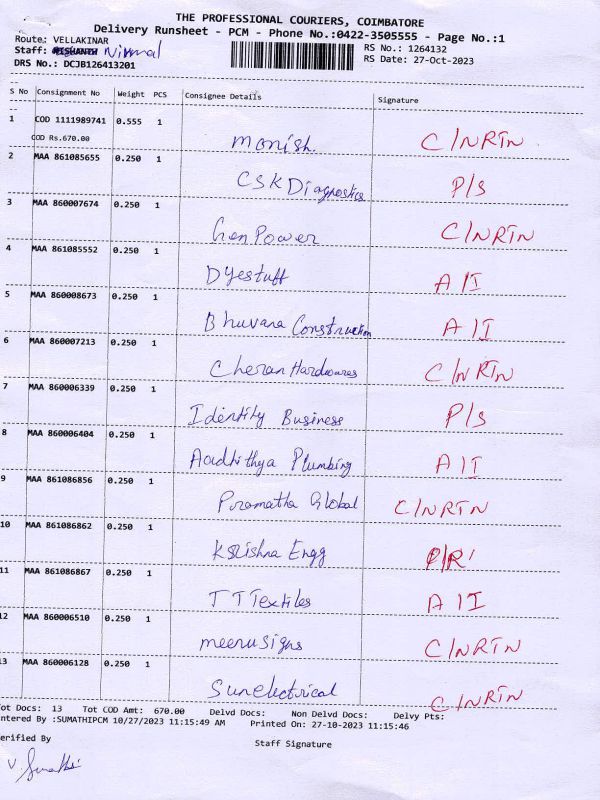 THE PROFESSIONAL COURIERS, COIMBATORE
Delivery Runsheet - PCM - Phone No.:0422-3505555 - Page No.:1
Route: VELLAKINAR
RS No.: 1264132
Staff: Nirmal
RS Date: 27-Oct-2023
DRS No.: DCJB126413201
S No Consignment No Weight PCS Consignee Details Signature
1 COD 1111989741 0.555 1
COD Rs.670.00 Monish. C/NRTN
2 MAA 861085655 0.250 1
CSK Diagnostics P/S
3 MAA 860007674 0.250 1
Gen Power C/NRTN
4 MAA 861085552 0.250 1
Dyestuff A/I
5 MAA 860008673 0.250 1
Bhuvana Construction A/I
6 MAA 860007213 0.250 1
Cheran Hardwares C/NRTN
7 MAA 860006339 0.250 1
Identity Business P/S
8 MAA 860006404 0.250 1
Aadhithya Plumbing A/I
9 MAA 861086856 0.250 1
Pramatha Global C/NRTN
10 MAA 861086862 0.250 1
Krishna Engg P/R
11 MAA 861086867 0.250 1
TT Textiles A/I
12 MAA 860006510 0.250 1
meerusigns C/NRTN
13 MAA 860006128 0.250 1
Sunelectrical C/NRTN
ot Docs: 13 Tot COD Amt: 670.00 Delvd Docs: Non Delvd Docs: Delvy Pts:
ntered By :SUMATHIPCM 10/27/2023 11:15:49 AM Printed On: 27-10-2023 11:15:46
erified By
Staff Signature